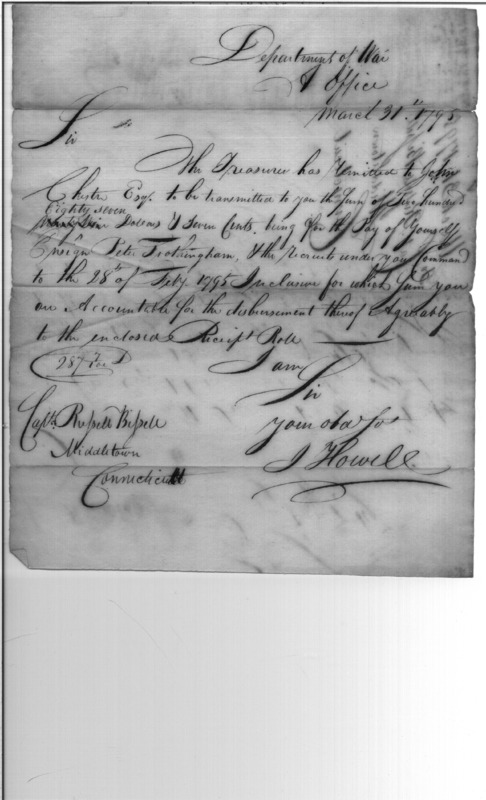 Department of War
A Office
March 31st 1795
Sir
The Treasurer has Remitted to John
Chester Esqr. to be transmitted to you the Sum of Two hundred
Eighty seven
Dolears & Seven Cents, being for the Pay of Yourself
Ensign Peter Frothingham, & the Recruits under your Command
to the 28th of Feby. 1795 Inclusive for which Sum you
are Accountable for the disbursement thereof Agreeably
to the enclosed Receipt Role
287 Dd
I am
Sir
your obd Sr
J Howell
Capt. Russell Bissell
Middletown
Connecticutt